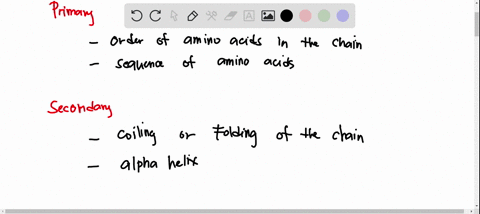 Primary
- order of amino acids in the chain
- sequence of amino acids
Secondary
- coiling or Folding of the chain
- alpha helix